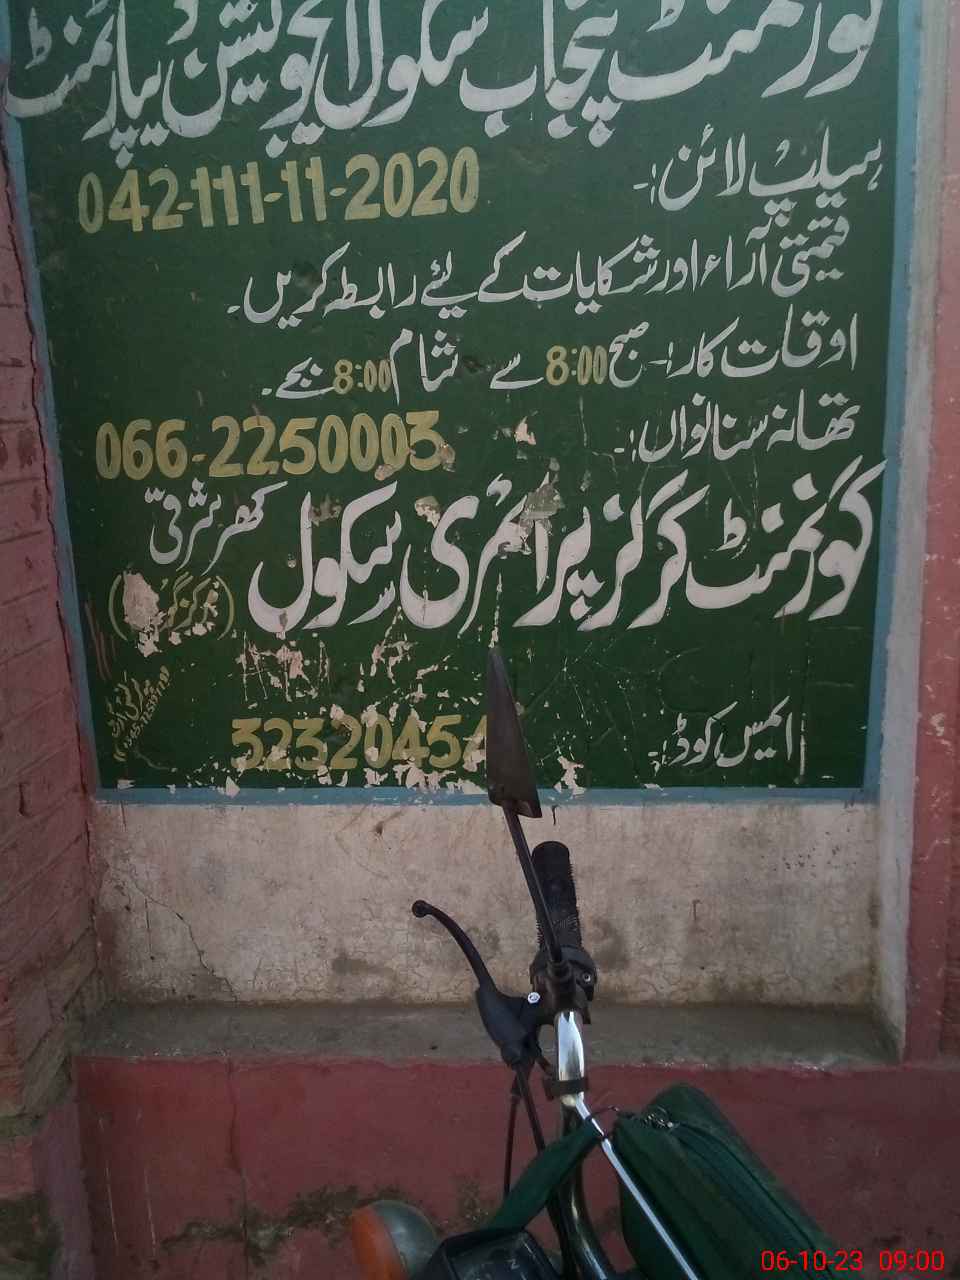 گورنمنٹ پنجاب سکول ایجوکیشن ڈیپارٹمنٹ
ہیلپ لائن:- 042-111-11-2020
قیمتی آراء اور شکایات کے لیئے رابطہ کریں۔
اوقات کار:- صبح 8:00 سے شام 8:00 بجے۔
تھانہ سنانواں:- 066-2250003
گورنمنٹ گرلز پرائمری سکول کھر شرقی
ایمیس کوڈ:- 3232045
06-10-23 09:00